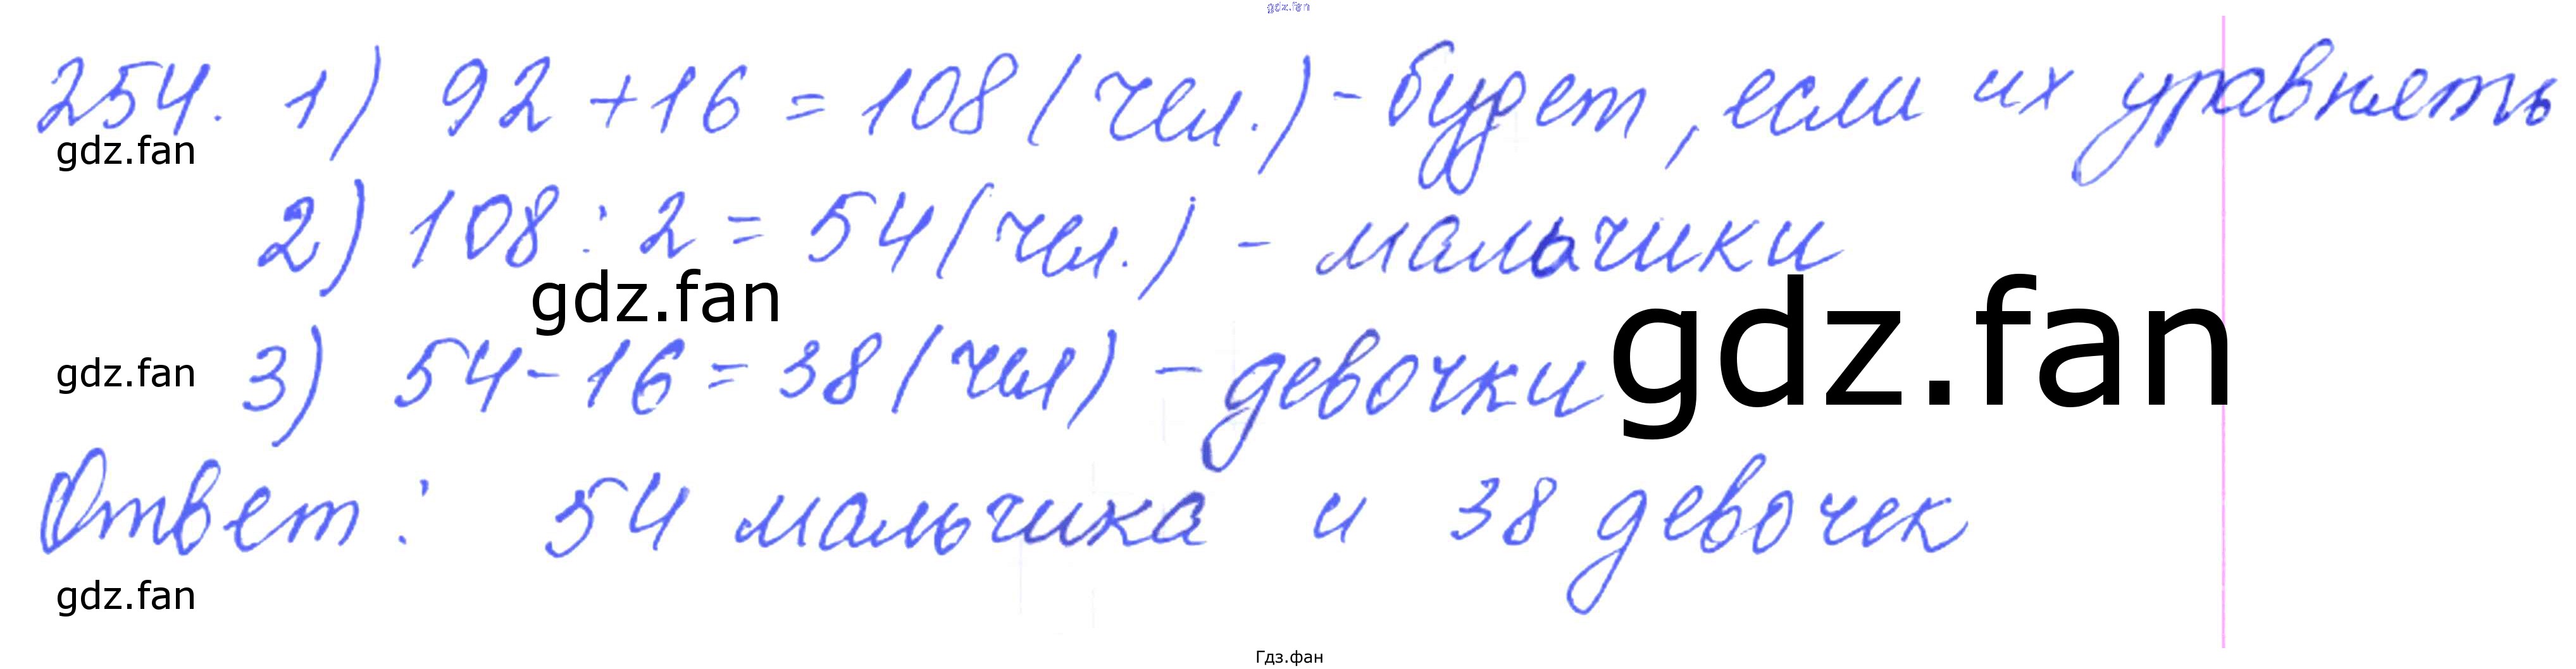 gdz.fan
254. 1) 92 + 16 = 108 (чел.) - будет, если их уравнять
gdz.fan
2) 108 : 2 = 54 (чел.) - мальчики
gdz.fan
gdz.fan
gdz.fan
3) 54 - 16 = 38 (чел) - девочки
Ответ: 54 мальчика и 38 девочек
gdz.fan
Гдз.фан